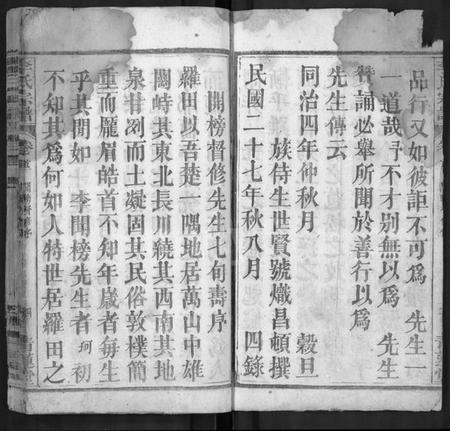 品行又如彼詎不可爲 先生一
一道哉予不才别無以爲 先生
贊誦必舉所聞於善行以爲
先生傳云
同治四年仲秋月 穀旦
族侍生世賢號熾昌頓撰
民國二十七年秋八月 四錄
開榜督修先生七旬壽序
羅田以吾楚一隅地居萬山中雄
關峙其東北長川繞其西南其地
泉甘冽而土凝固其民俗敦樸簡
重而龐眉皓首不知年歲者每生
乎其間如十李開榜先生者珂初
不知其爲何如人特世居羅田之